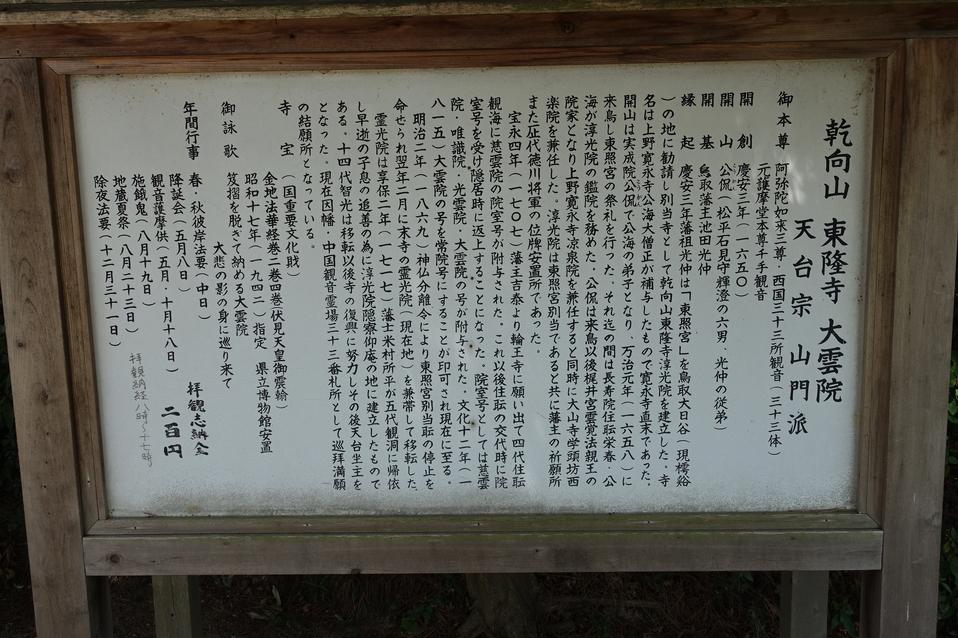 乾向山　東隆寺　大雲院
天台宗　山門派
御本尊　阿弥陀如来三尊・西国三十三所観音（三十三体）
元護摩堂本尊千手観音
開創　慶安三年（一六五〇）
開山　公侃（松平石見守輝澄の六男、光仲の従弟）
開基　鳥取藩主池田光仲
縁起　慶安三年藩祖光仲は「東照宮」を鳥取大日谷（現樗谿
）の地に勧請し別当寺として乾向山東隆寺淳光院を建立した。寺
名は上野寛永寺公海大僧正が補与したもので寛永寺直末であった。
開山は実成院公侃で公海の弟子となり、万治元年（一六五八）に
来鳥し東照宮の祭礼を行った。それ迄の間は長寿院住耺栄春・公
海が淳光院の鑑院を務めた。公侃は来鳥以後梶井宮雲覚法親王の
院家となり上野寛永寺凉泉院を兼任すると同時に大山寺学頭坊西
楽院を兼任した。淳光院は東照宮別当であると共に藩主の祈願所
また歴代徳川将軍の位牌安置所であった。
宝永四年（一七〇七）藩主吉泰より輪王寺に願い出て四代住耺
観海に慈雲院の院室号が附与された。これ以後住耺の交代時に院
室号を受け隠居時に返上することになった。院室号としては慈雲
院・唯識院・光雲院・大雲院の号が附与された。文化十二年（一
八一五）大雲院の号を常院号にすることが印可され現在に至る。
明治二年（一八六九）神仏分離令により東照宮別当耺の停止を
命せられ翌年二月に末寺の霊光院（現在地）を兼帯して移転した。
霊光院は享保二年（一七一七）藩士米村所平が五代観洞に帰依
し早逝の子息の追善の為に淳光院隠寮仰庵の地に建立したもので
ある。十四代智光は移転以後寺の復興に努力しその後天台座主を
となった。現在因幡・中国観音霊場三十三番札所として巡拝満願
の結願所となっている。
寺宝　（国重要文化財）
金地法華経巻二巻四巻伏見天皇御宸翰）
昭和十七年（一九四二）指定　県立博物館安置
御詠歌　笈摺を脱ぎて納める大雲院
大悲の影の身に巡り来て
年間行事　春・秋彼岸法要（中日）
降誕会（五月八日）
観音護摩供（五月・十月十八日）
施餓鬼（八月十九日）
地蔵夏祭（八月二十三日）
除夜法要（十二月三十一日）
拝観志納金
二百円
拝観納経八時～十七時